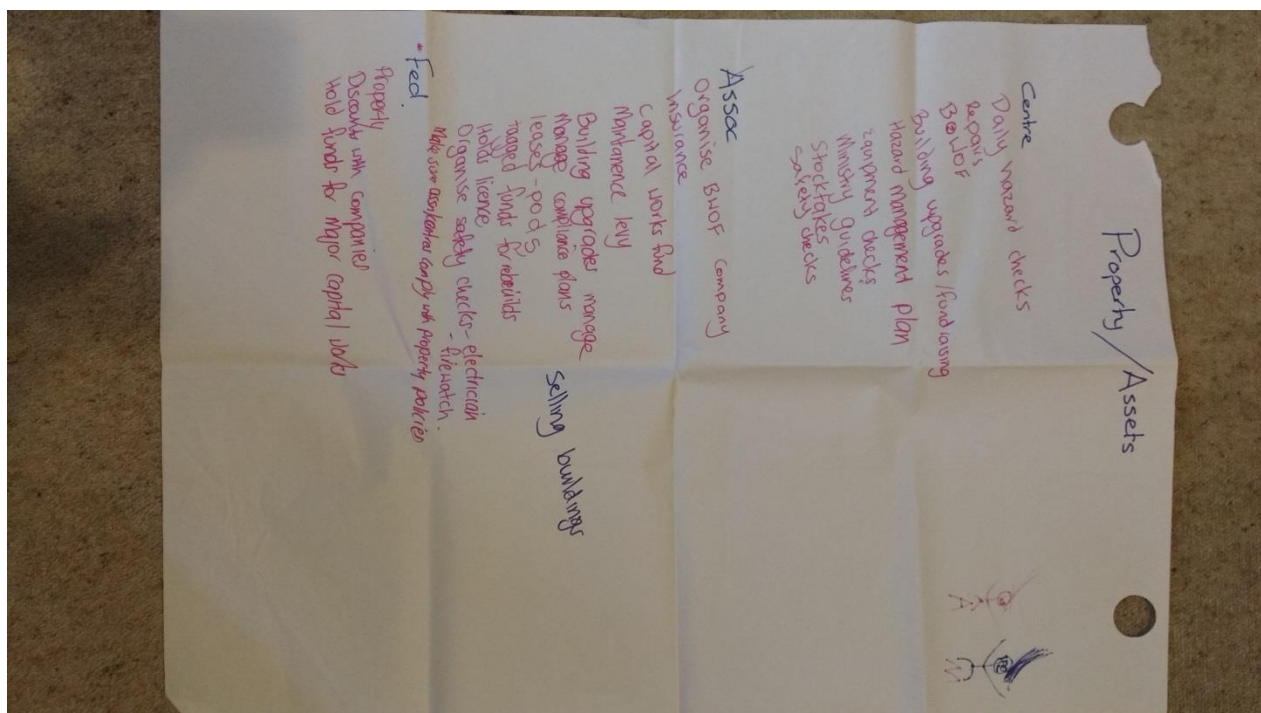 Property/Assets
Centre
Daily hazard checks
Repairs
BWOF
Building upgrades/fundraising
Hazard management plan
Equipment checks
Ministry guidelines
Stocktakes
Safety checks
Assoc
Organise BWOF company
Insurance
Capital works fund
Maintanence levy
Building upgrades manage
Manage compliance plans
leases - pods
Selling buildings
tagged funds for rebuilds
Holds licence
Organise safety checks - electrician
- firewatch.
Fed.
Make sure assn/centre comply with property policies
Property
Discounts with companies
Hold funds for major capital works